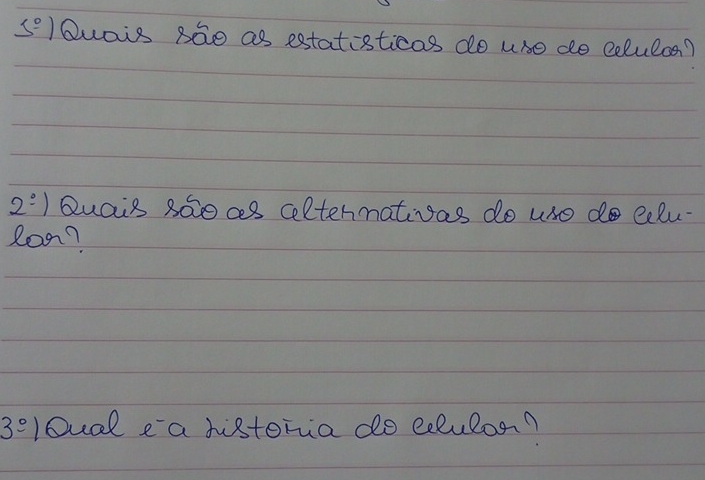 1º) Quais são as estatísticas do uso do celular?
2º) Quais são as alternativas do uso do celu-
lar?
3º) Qual é a história do celular?